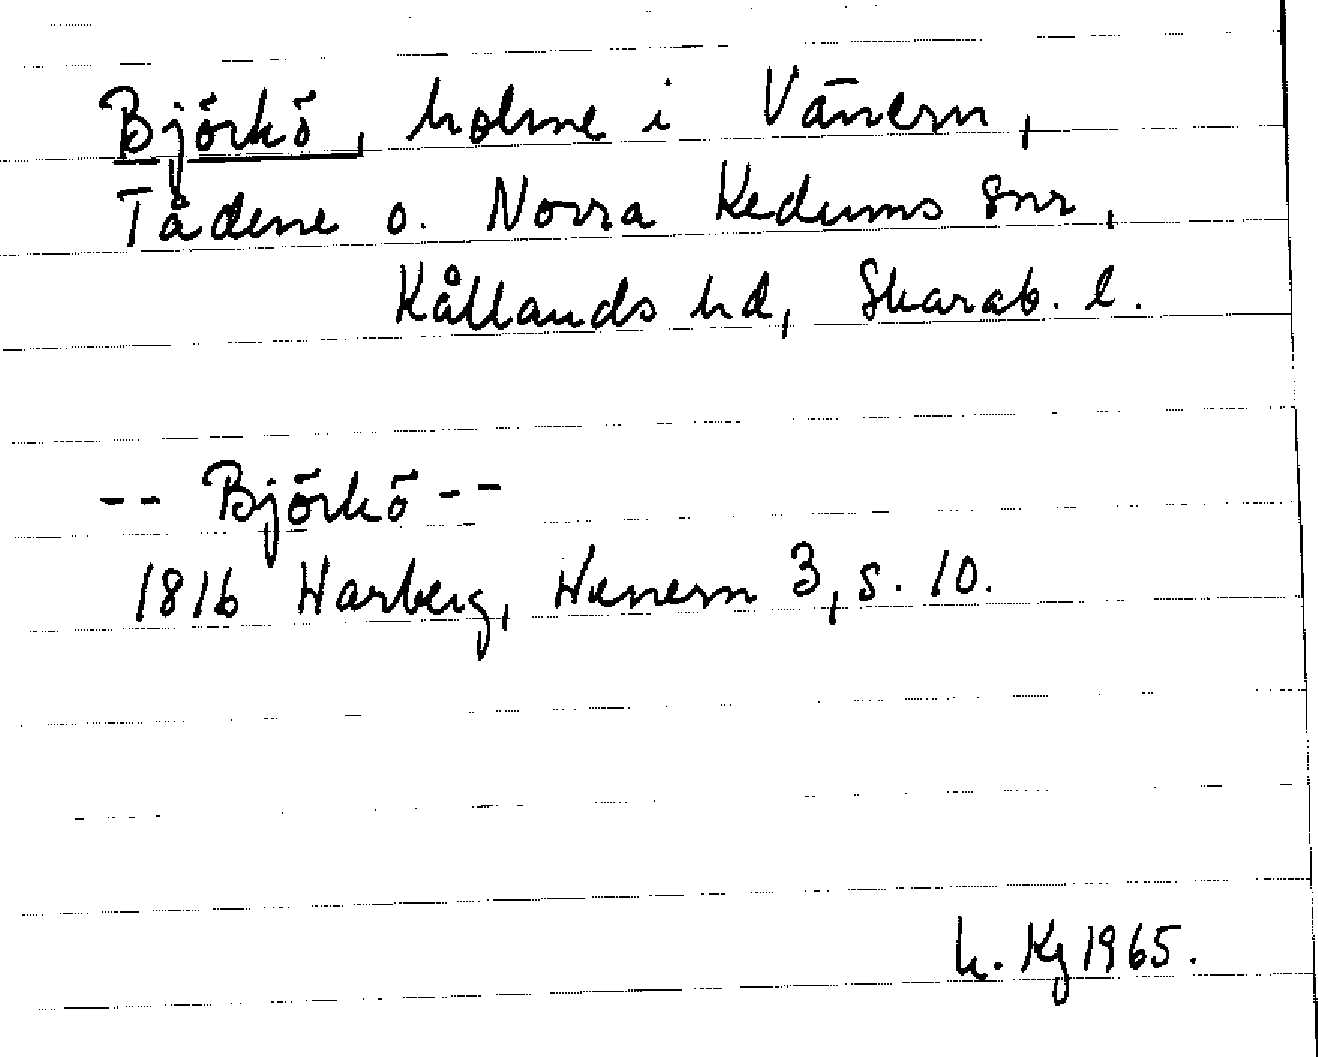 Björkö, holme i Vänern,
Tådene o. Norra Kedums snr,
Kållands hd, Skarab. l.
-- Björkö --
1816 Warberg, Wenern 3, s. 10.
h. Kg 1965.